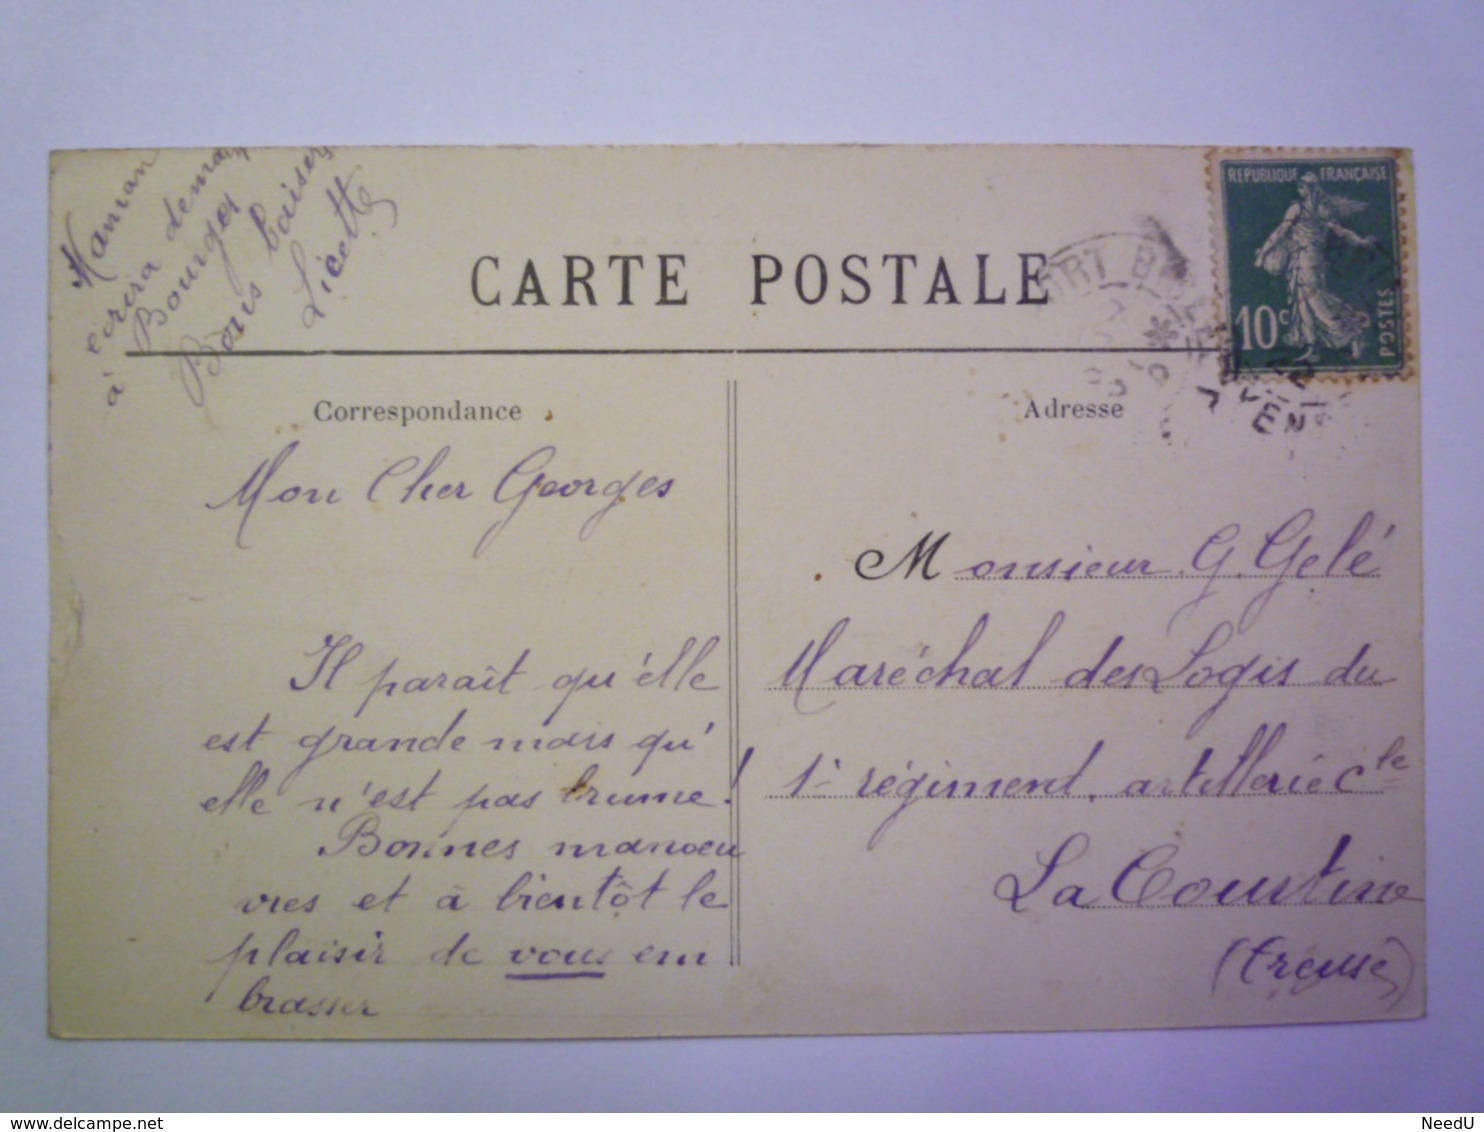 Maman
écrira demain
à Bourges
Bons baisers
Licette
CARTE POSTALE
REPUBLIQUE FRANÇAISE
10c
POSTES
Correspondance
Adresse
Mon Cher Georges
Il parait qu'elle
est grande mais qu'
elle n'est pas brune!
Bonnes manoeu
vres et à bientôt le
plaisir de vous em
brasser
Monsieur G. Gelé
Maréchal des Logis du
1er régiment artillerie Cle
La Courtine
(Creuse)
NeedU